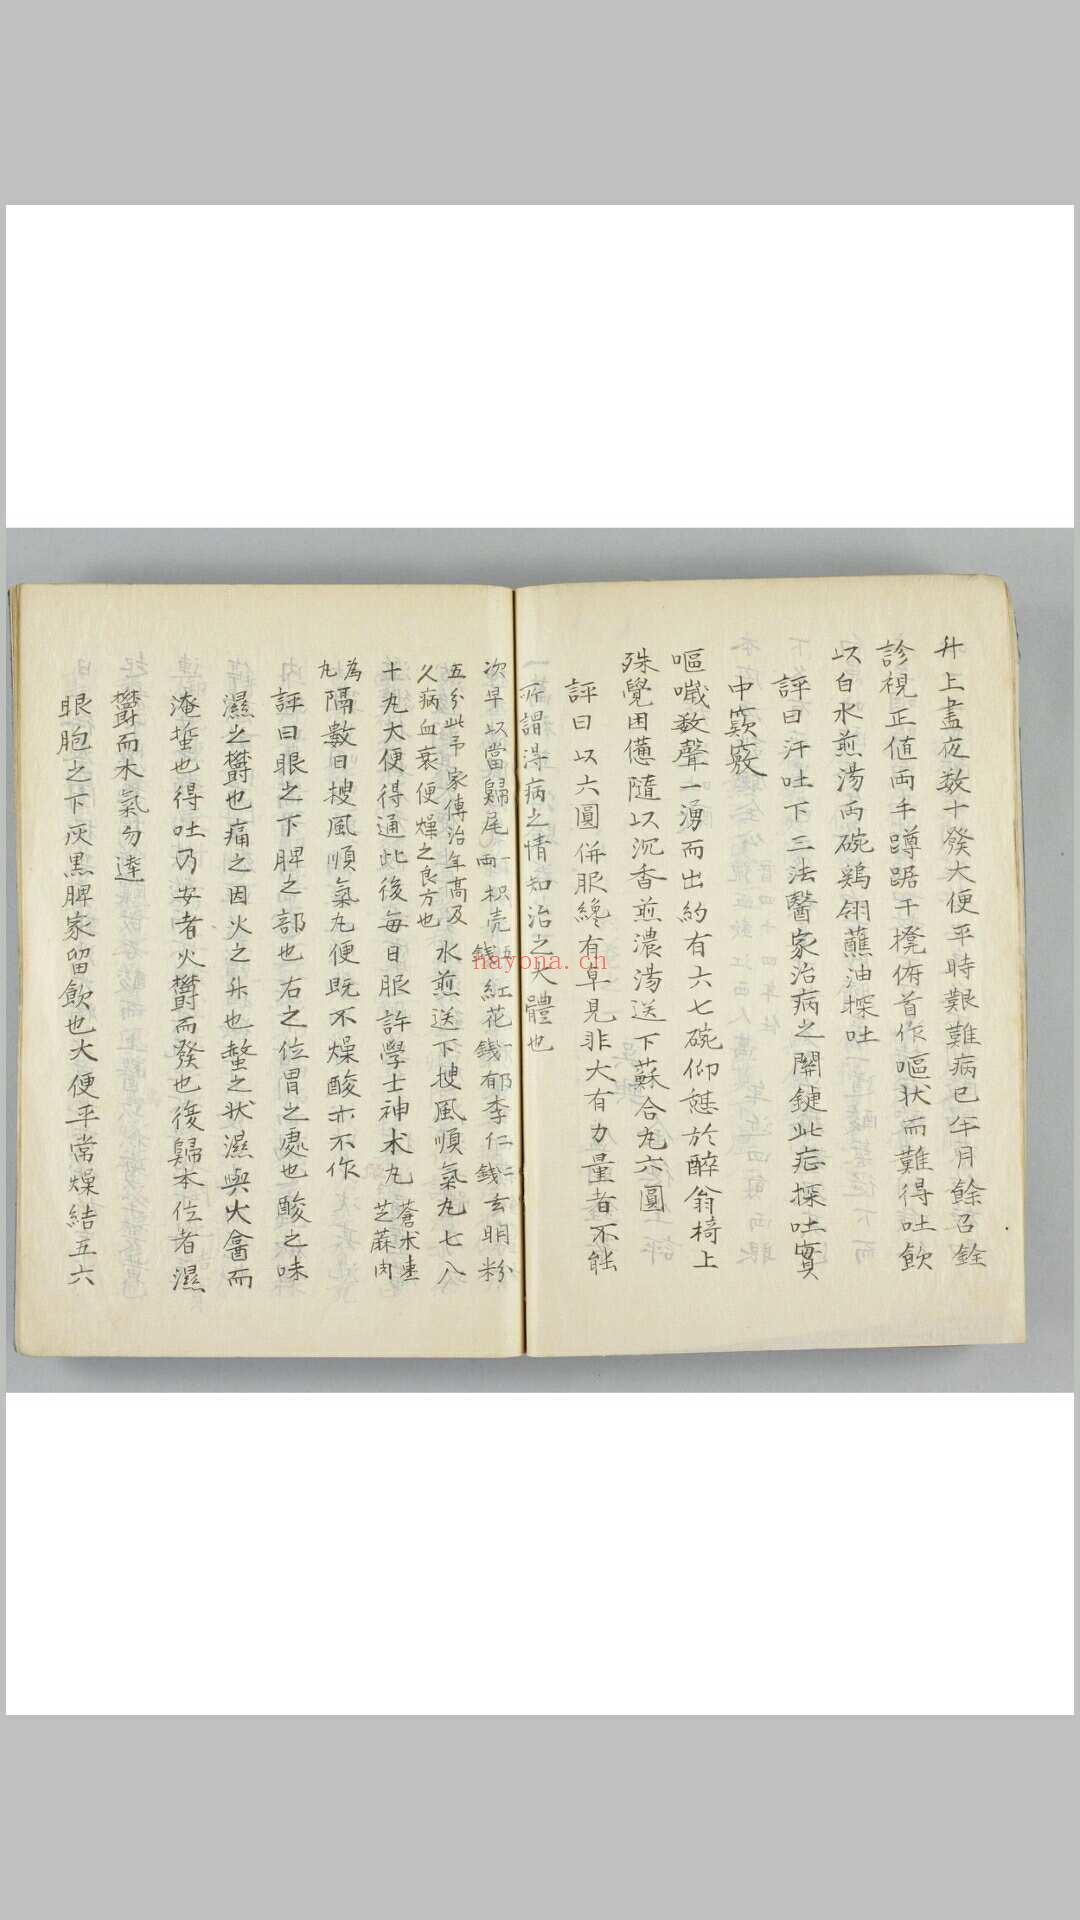 升上盡夜数十發大便平時艱難病已年月餘召銓
診視正値両手蹲踞干櫈俯首作嘔状而難得吐飲
以白水煎湯両碗鷄翎蘸油探吐
評曰汗吐下三法醫家治病之関鍵此症探吐實
中窾竅
嘔噦数聲一湧而出約有六七碗仰憇於醉翁椅上
殊覺困憊隨以沉香煎濃湯送下蘇合丸六圓
評曰以六圓併服纔有卓見非大有力量者不能
所謂得病之情知治之大體也
次早以當歸尾一両枳壳錢紅花一錢郁李仁錢玄明粉
五分此予家傳治年高及
久病血衰便燥之良方也
水煎送下搜風順氣丸七八
十丸大便得通此後每日服許學士神术丸
蒼术棗
芝蔴肉
為
丸
隔數日搜風順氣丸便既不燥酸亦不作
評曰眼之下脾之部也右之位胃之處也酸之味
濕之欝也痛之因火之升也螫之状濕與火會而
淹蜇也得吐乃安者火欝而發也復歸本位者濕
欝而木氣勿達
眼胞之下灰黑脾家留飲也大便平常燥結五六
hayona.cn